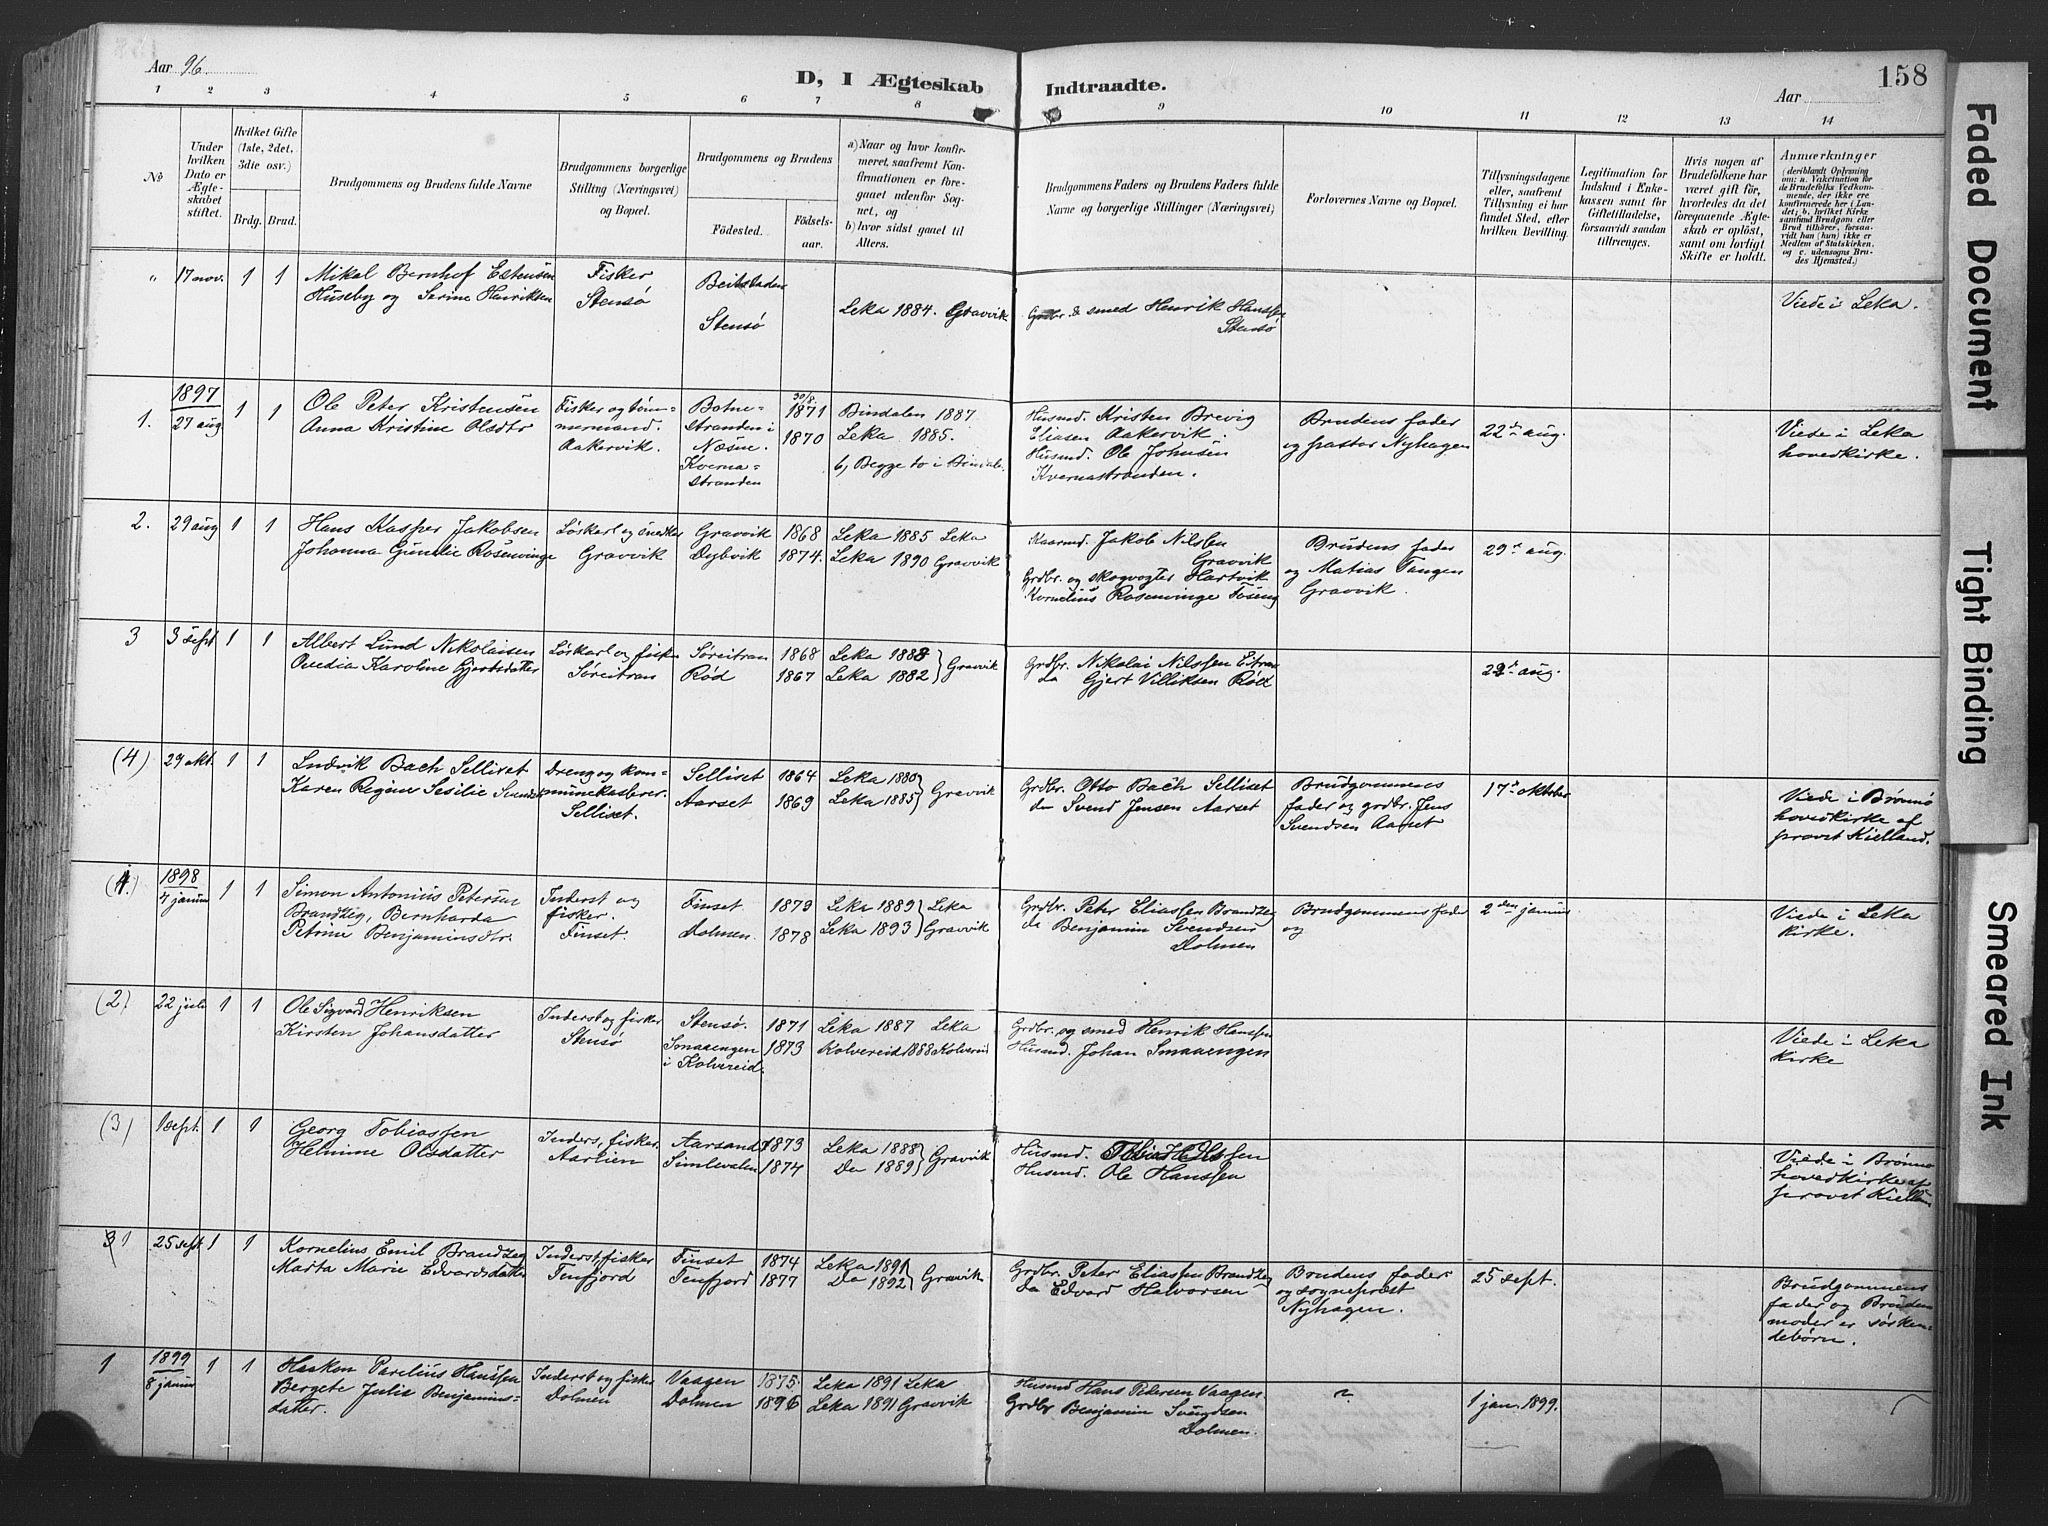 Aar 96.
D, I Ægteskab Indtraadte.
Aar
158
1 2 3 4 5 6 7 8 9 10 11 12 13 14
No
Under hvilken Dato er Ægteskabet stiftet.
Hvilket Gifte (1ste, 2det, 3die osv.)
Brdg. Brud.
Brudgommens og Brudens fulde Navne
Brudgommens borgerlige Stilling (Næringsvei) og Bopæl.
Brudgommens og Brudens
Fødested.
Fødsels-aar.
a) Naar og hvor konfirmeret, saafremt Konfirmationen er foregaaet udenfor Sognet, og
b) hvor sidst gaaet til Alters.
Brudgommens Faders og Brudens Faders fulde Navne og borgerlige Stillinger (Næringsvei)
Forlovernes Navne og Bopæl.
Tillysningsdagene eller, saafremt Tillysning ei har fundet Sted, efter hvilken Bevilling.
Legitimation for Indskud i Enkekassen samt for Giftetilladelse, forsaavidt saadan tiltrænges.
Hvis nogen af Brudefolkene har været gift før, hvorledes da det foregaaende Ægteskab er opløst, samt om lovligt Skifte er holdt.
Anmærkninger (deriblandt Oplysning om: a. Vakcination for de Brudefolks Vedkommende, der ikke ere konfirmerede her i Landet; b. hvilket Kirkesamfund Brudgom eller Brud tilhører, forsaavidt han (hun) ikke er Medlem af Statskirken, og c. udensogns Brudes Hjemsted.)
" 17 nov. 1 1
Mikal Bernhof Estensen
Huseby og Serine Henriksen
Fisker
Stensø
Beitstaden
Stensø
Leka 1884. Gravvik
Grdbr. & smed Henrik Hanssen
Stensø
Viede i Leka.
1. 1897
27 aug 1 1
Ole Peter Kristensen
Anna Kristine Olsdtr
Fisker og tøm-
mermand.
Aakervik.
Botne-
stranden i
Næsne.
Kverna-
stranden
30/8. 1871
1870
Bindalen 1887.
Leka 1885.
b, Begge to i Bindal.
Husmd. Kristen Brevig
Eliasen Aakervik.
Husmd. Ole Johnsen
Kvernastranden.
Brudens fader
og pastor Nyhagen
22de aug.
Viede i Leka
hovedkirke.
2. 29 aug 1 1
Hans Kasper Jakobsen
Johanna Gunelie Rosenvinge
Løskarl og snedker
Gravvik
Gravvik
Dybvik
1868
1874.
Leka 1885 Leka
Leka 1890 Gravvik
Kaarmd. Jakob Nilssen
Gravvik
Grdbr. og skogvogter Hartvik
Kornelius Rosenvinge Toseng
Brudens fader
og Matias Tangen
Gravvik.
29de aug.
3 3 sept 1 1
Albert Lund Nikolaisen
Ovedia Karoline Gjertsdatter
Løskarl og fisker
Søreitran
Søreitran
Rød
1868
1867
Leka 1883
Leka 1882 } Gravvik
Grdbr. Nikolai Nilssen Eitran
do Gjert Villiksen Rød
29de aug.
(4) 29 okt. 1 1
Ludvik Bach Selliset
Karen Regine Sesilie Svendsd
Dreng og kom-
munekasserer.
Selliset.
Selliset
Aarset
1864
1869
Leka 1880
Leka 1885 } Gravvik
Grdbr. Otto Bach Selliset
do Svend Jensen Aarset
Brudgommens
fader og grdbr. Jens
Svendsen Aarset
17de oktober
Viede i Brønnø
hovedkirke af
provst Kielland.
(1.) 1898
4 januar 1 1
Simon Antonius Petersen
Brandzeg, Bernharda
Petrine Benjaminsdtr.
Inderst og
fisker.
Finset.
Finset
Dolmen.
1873
1878
Leka 1889 Leka
Leka 1893 Gravvik
Grdbr. Peter Eliassen Brandzeg
do Benjamin Svendsen
Dolmen
Brudgommens fader
og
2den januar
Viede i Leka
kirke.
(2) 22 juli 1 1
Ole Sigvard Henriksen
Kirsten Johansdatter
Inderst og fisker
Stensø
Stensø.
Smaaengen
i Kolvereid.
1871
1873
Leka 1887 Leka
Kolvereid 1888 Kolvereid
Grdbr. og smed Henrik Hanssen
Husmd. Johan Smaaengen
Viede i Leka
kirke
(3) 1 sept. 1 1
Georg Tobiassen
Helmine Olsdatter
Inders, fisker.
Aarlien
Aarsand
Simlevalen
1873
1874
Leka 1888
Do 1889 } Gravvik
Husmd.
Husmd. Ole Hanssen
Viede i Brønnø
hovedkirke af
provst Kielland
1 25 sept 1 1
Kornelius Emil Brandzeg
Marta Marie Edvardsdatter
Inderst, fisker
Tenfjord
Finset
Tenfjord
1874
1877
Leka 1891
Do 1892 } Gravvik
Grdbr. Peter Eliassen Brandzeg
Do Edvard Halvorsen
Brudens fader
og sogneprest
Nyhagen.
25 sept.
Brudgommens
fader og Brudens
moder er søsken-
debørn.
1 1899
8 januar 1 1
Haakon Parelius Hanssen
Bergete Julia Benjamins-
datter.
Inderst og fisker
Dolmen
Vaagen
Dolmen
1875.
1896
Leka 1891 Leka
Leka 1891 Gravvik
Husmd Hans Pedersen Vaagen
Grdbr Benjamin Svendsen
Dolmen.
?
1 jan. 1899.
Faded Document
Tight Binding
Smeared Ink